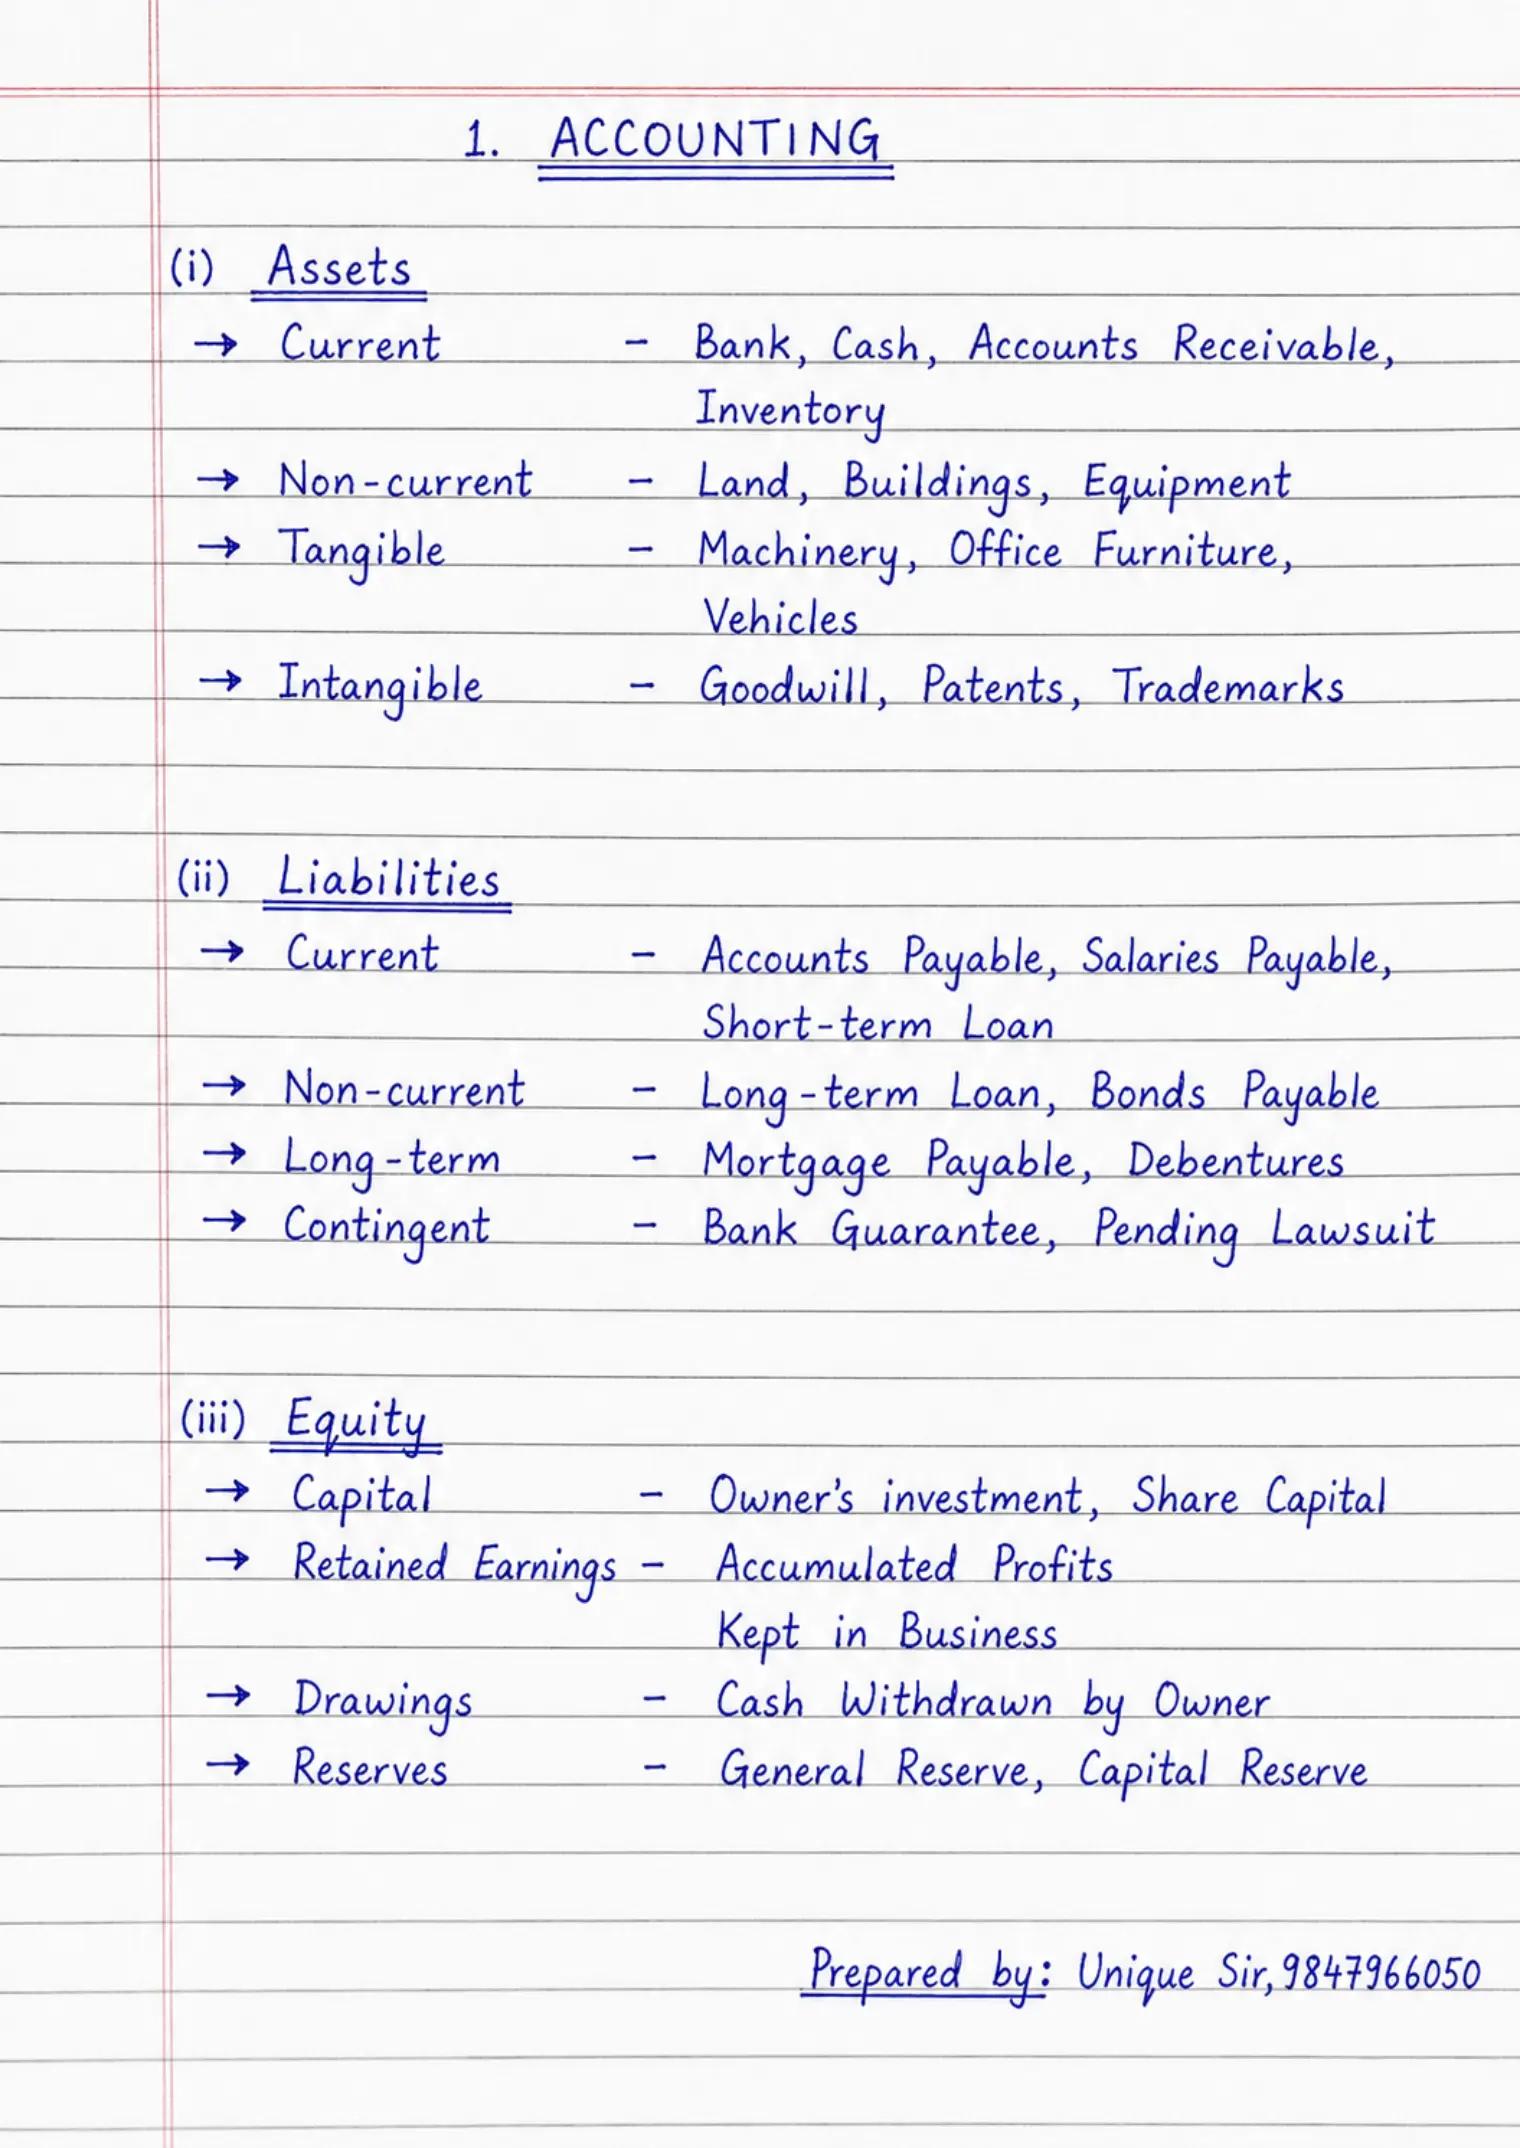 1. ACCOUNTING
(i) Assets
→ Current - Bank, Cash, Accounts Receivable,
Inventory
→ Non-current - Land, Buildings, Equipment
→ Tangible - Machinery, Office Furniture,
Vehicles
→ Intangible - Goodwill, Patents, Trademarks
(ii) Liabilities
→ Current - Accounts Payable, Salaries Payable,
Short-term Loan
→ Non-current - Long-term Loan, Bonds Payable
→ Long-term - Mortgage Payable, Debentures
→ Contingent - Bank Guarantee, Pending Lawsuit
(iii) Equity
→ Capital - Owner's investment, Share Capital
→ Retained Earnings - Accumulated Profits
Kept in Business
→ Drawings - Cash Withdrawn by Owner
→ Reserves - General Reserve, Capital Reserve
Prepared by: Unique Sir, 9847966050